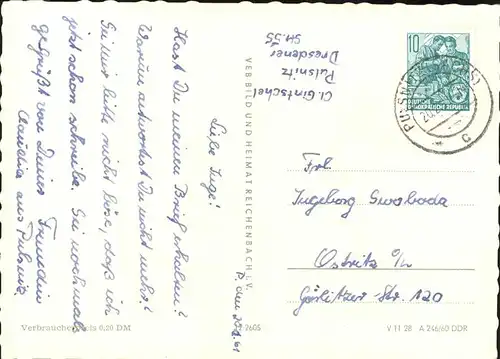 P., den 20.2.61
Liebe Inge!
Hast Du meinen Brief erhalten?
Warum antwortest Du nicht mehr?
Sei mir bitte nicht böse, daß ich
jetzt schon schreibe. Sei nochmals
gegrüßt von Deiner Freundin
Claudia aus Pulsnitz
Cl. Gintschel
Pulsnitz
Dresdener
Str. 55
VEB BILD UND HEIMAT REICHENBACH I. V.
10
DEUTSCHE
DEMOKRATISCHE REPUBLIK
PULSNITZ
c
Frl.
Ingeborg Swoboda
Ostritz O/L
Görlitzer-Str. 120
Verbraucherpreis 0,20 DM
2605
V 11 28 A 246/60 DDR